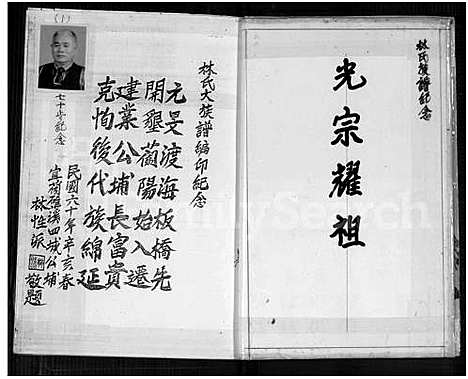 林氏族譜紀念
光宗耀祖
(1)
林氏大族譜編印紀念
元旻渡海板橋先
開墾蘭陽始入遷
建業公埔長富貴
克恂後代族綿延
七十歲紀念
民國六十年辛亥春
宜蘭礁溪四城公埔
林性派
敬題
FamilySearch